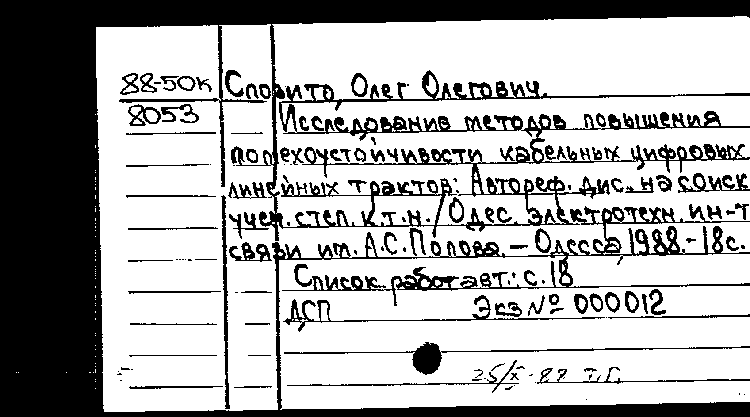 88-50к Спорито, Олег Олегович.
8053 Исследование методов повышения
помехоустойчивости кабельных цифровых
линейных трактов: Автореф. дис. на соиск
учен. степ. к.т.н. / Одес. электротехн. ин-т
связи им. А.С. Попова. – Одесса, 1988. – 18 с.
Список работ авт.: с. 18
ДСП Экз № 000012
25/X-88 Т.Г.